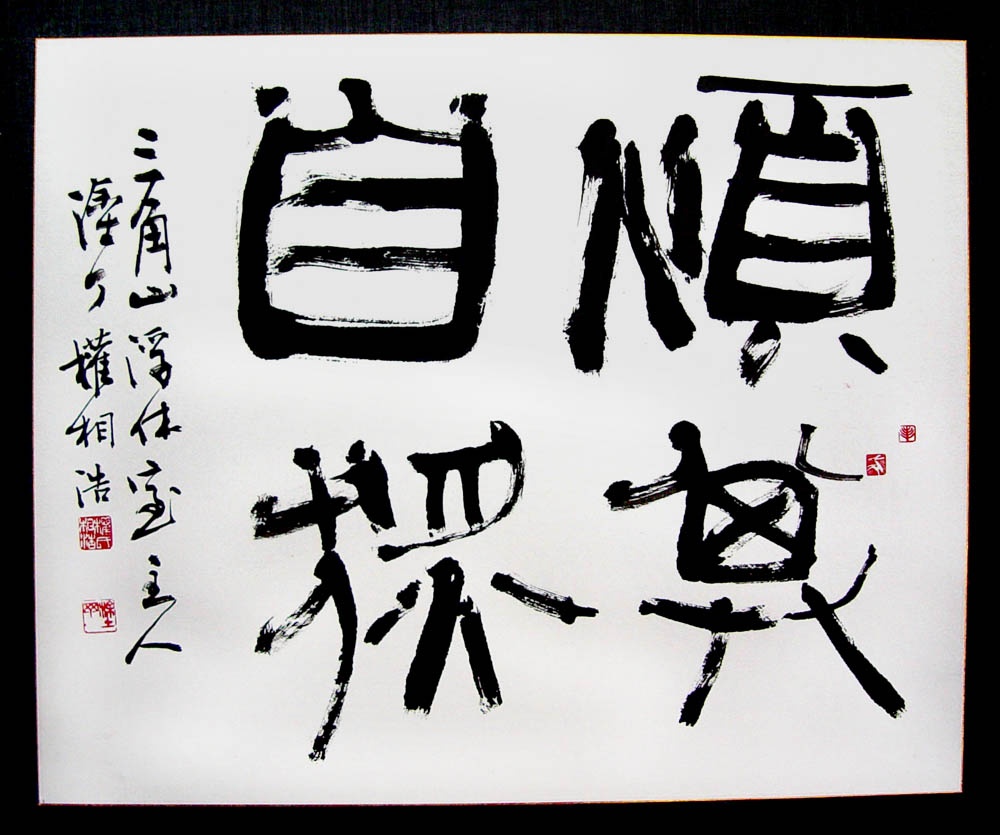 順其
自然
三角山浮休室主人
塗丁權相浩